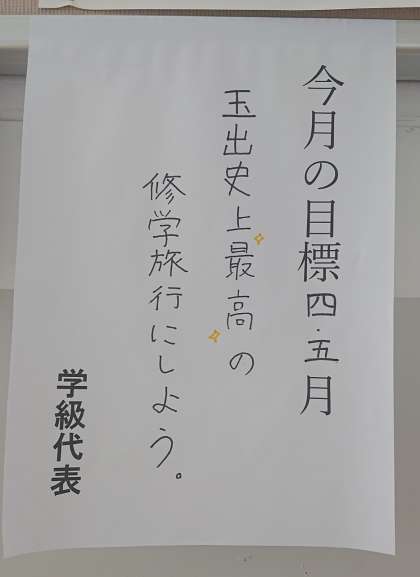 今月の目標四・五月
玉出史上最高の
修学旅行にしよう。
学級代表